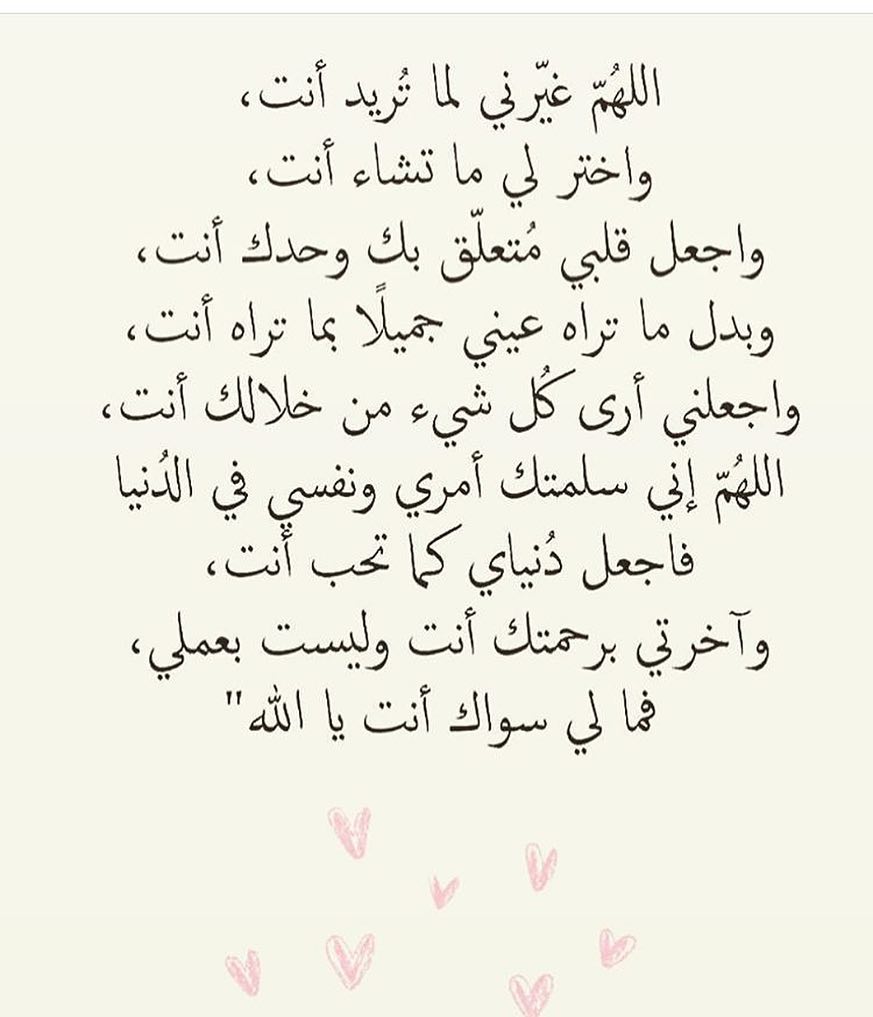 اللهُمّ غيّرني لما تُريد أنت،
واختر لي ما تشاء أنت،
واجعل قلبي مُتعلّق بك وحدك أنت،
وبدل ما تراه عيني جميلًا بما تراه أنت،
واجعلني أرى كُل شيء من خلالك أنت،
اللهُمّ إني سلمتك أمري ونفسي في الدُنيا
فاجعل دُنياي كما تحب أنت،
وآخرتي برحمتك أنت وليست بعملي،
فما لي سواك أنت يا الله"